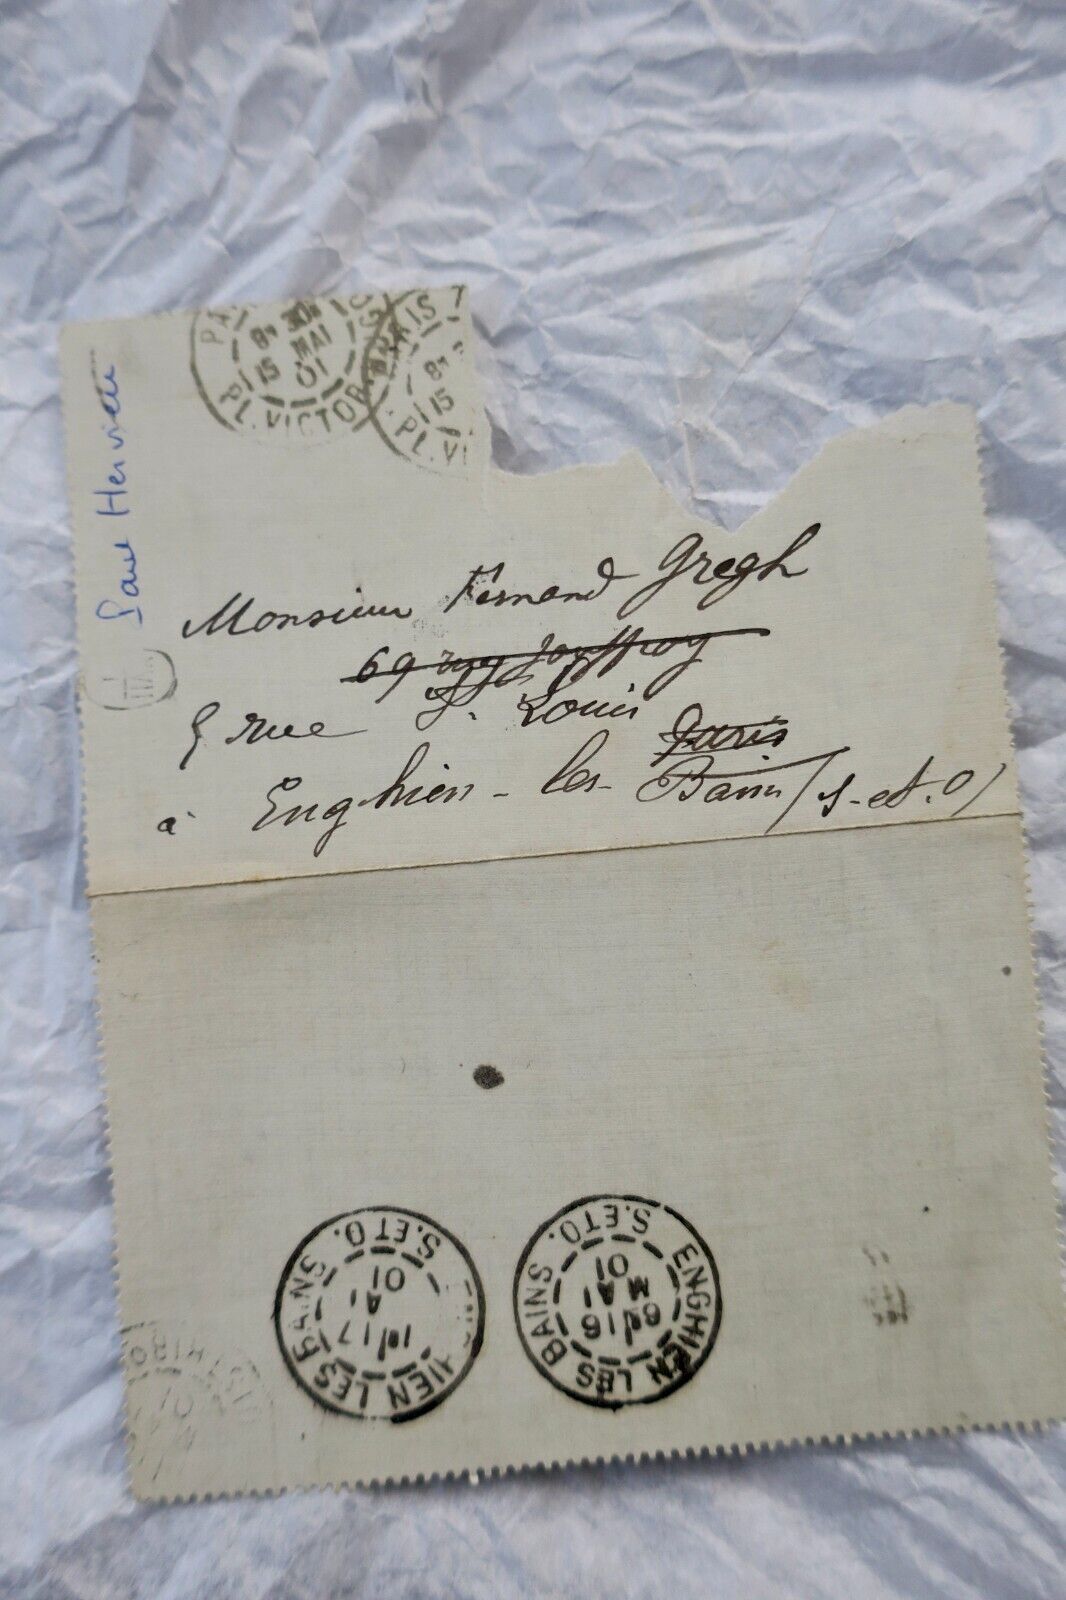 PA
8H 30M
15 MAI
01
PL. VICTOR
PARIS 7
8H
15
PL. VI
Paul Hervieu
Monsieur Fernand Gregh
69 rue Jouffroy
5 rue St. Louis
Paris
à Enghien-les-Bains (S.-et-O)
ENGHIEN LES BAINS
6E 16
MAI
01
S.ET O.
HIEN LES BAINS
1E 17
AI
01
S.ET O.